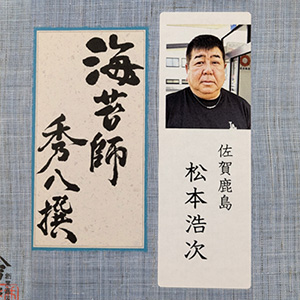 海苔師
秀八撰
佐賀鹿島
松本浩次